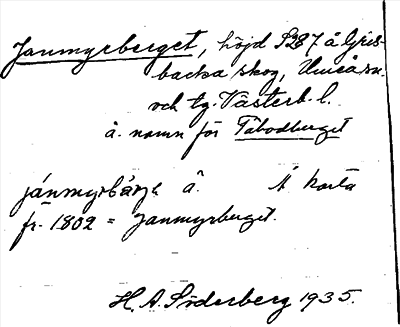 Janmyrberget, höjd S287 å Gris-
backa skog, Umeå sn.
och tg. Västerb. l.
å. namn för Täbodberget
å. Å karta
fr. 1802 = Janmyrberget.
H. A. Söderberg 1935.